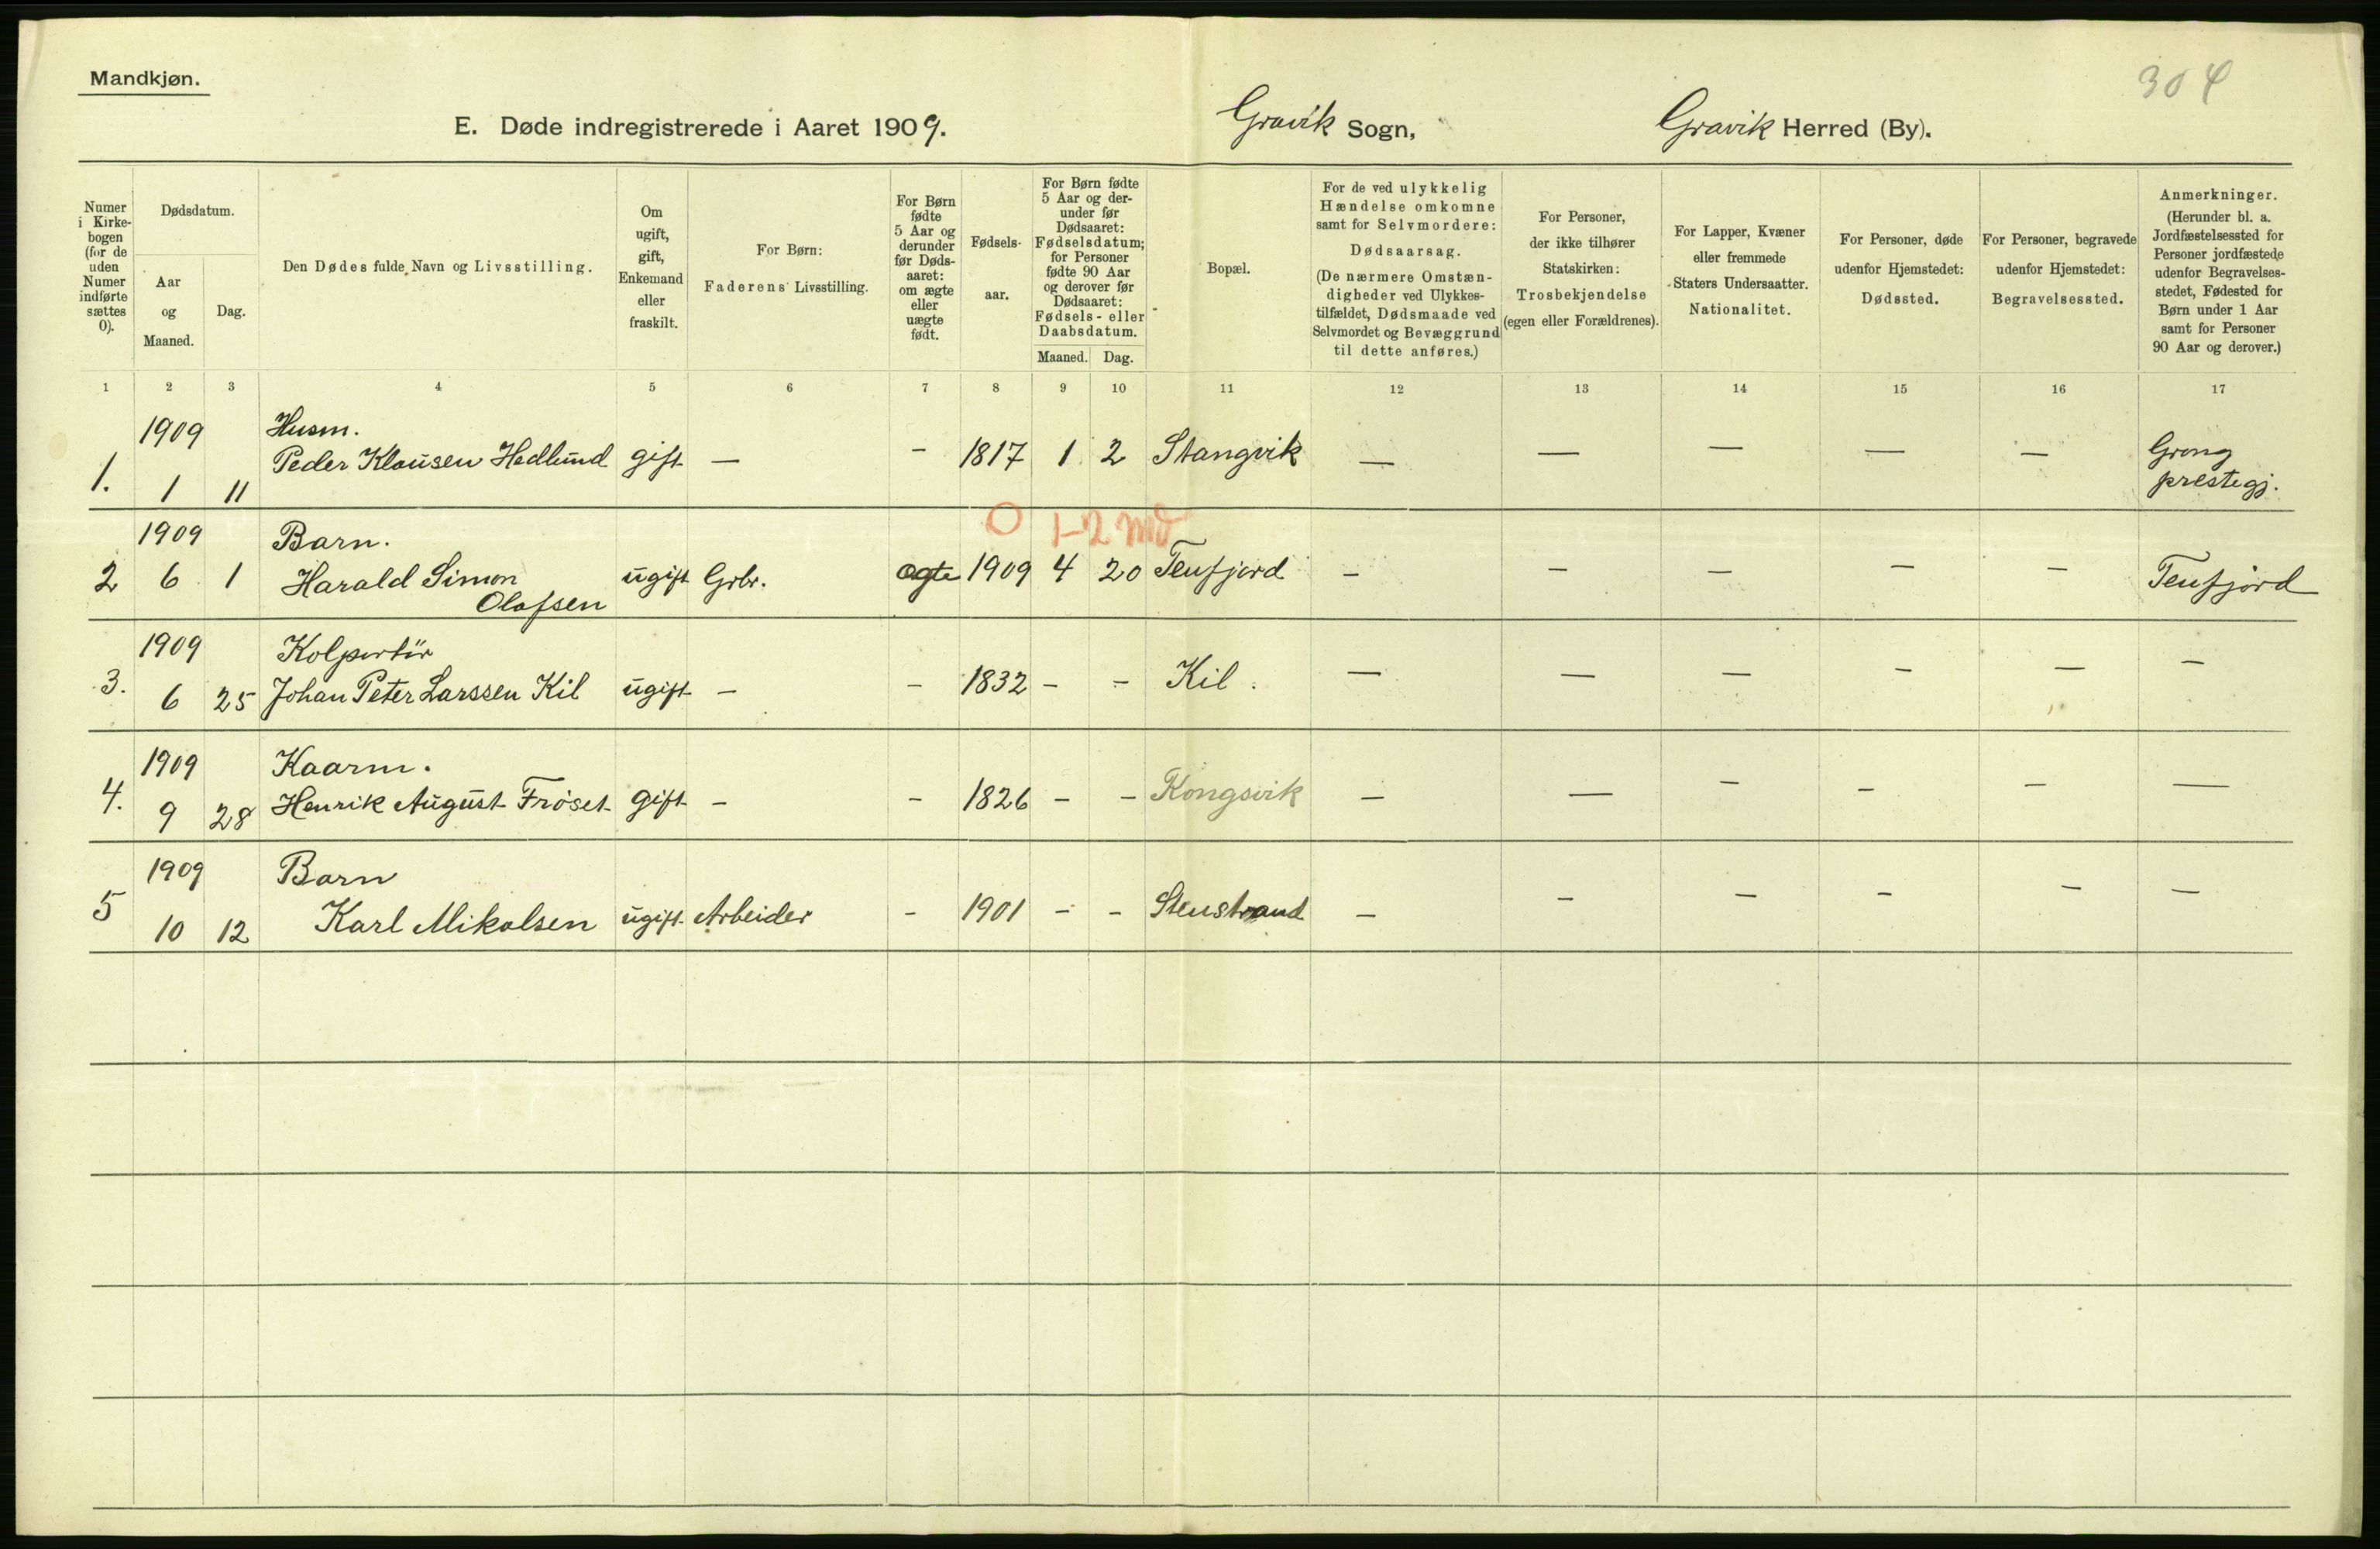 Mandkjøn.
304
E. Døde indregistrerede i Aaret 1909.
Gravik Sogn,
Gravik Herred (By).
Numer i Kirkebogen (for de uden Numer indførte sættes 0).
Dødsdatum.
Aar og Maaned.
Dag.
Den Dødes fulde Navn og Livsstilling.
Om ugift, gift, Enkemand eller fraskilt.
For Børn: Faderens Livsstilling.
For Børn fødte 5 Aar og derunder før Dødsaaret: om ægte eller uægte født.
Fødselsaar.
For Børn fødte 5 Aar og derunder før Dødsaaret: Fødselsdatum; for Personer fødte 90 Aar og derover før Dødsaaret: Fødsels- eller Daabsdatum.
Maaned. Dag.
Bopæl.
For de ved ulykkelig Hændelse omkomne samt for Selvmordere: Dødsaarsag. (De nærmere Omstændigheder ved Ulykkestilfældet, Dødsmaade ved Selvmordet og Bevæggrund til dette anføres.)
For Personer, der ikke tilhører Statskirken: Trosbekjendelse (egen eller Forældrenes).
For Lapper, Kvæner eller fremmede Staters Undersaatter. Nationalitet.
For Personer, døde udenfor Hjemstedet: Dødssted.
For Personer, begravede udenfor Hjemstedet: Begravelsessted.
Anmerkninger. (Herunder bl. a. Jordfæstelsessted for Personer jordfæstede udenfor Begravelsesstedet, Fødested for Børn under 1 Aar samt for Personer 90 Aar og derover.)
1 2 3 4 5 6 7 8 9 10 11 12 13 14 15 16 17
1909 Husm.
1. 1 11 Peder Klausen Hedlund gift — - 1817 1 2 Stangvik — — — — — Grong prestegj.
O 1-2 md
1909 Barn.
2 6 1 Harald Simon Olafsen ugift Grbr. ægte 1909 4 20 Tenfjord - - - - - Tenfjord
1909 Kolportör
3. 6 25 Johan Peter Larssen Kil ugift - - 1832 - - Kil. — — — - — -
1909 Kaarm.
4. 9 28 Henrik August Fröset gift - - 1826 - - Kongsvik - — - - - —
1909 Barn
5 10 12 Karl Mikalsen ugift Arbeider - 1901 - - Stenstrand - - - - - -